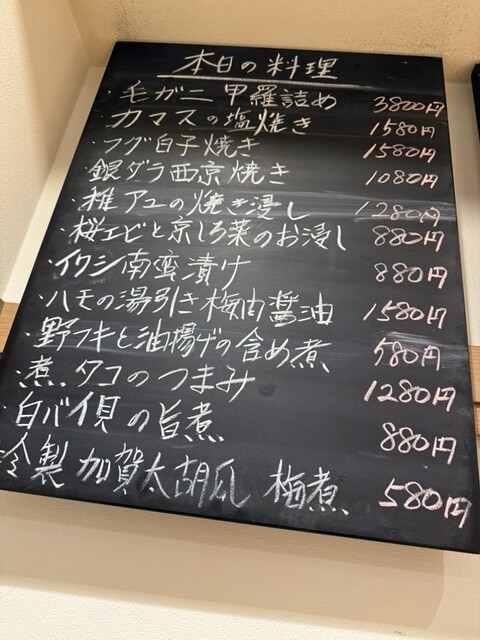 本日の料理
・毛ガニ 甲羅詰め 3800円
・カマスの塩焼き 1580円
・フグ白子焼き 1580円
・銀ダラ西京焼き 1080円
・稚アユの焼き浸し 1280円
・桜エビと京しろ菜のお浸し 880円
・イワシ南蛮漬け 880円
・ハモの湯引き梅肉醤油 1580円
・野フキと油揚げの含め煮 580円
・煮タコのつまみ 1280円
・白バイ貝の旨煮 880円
・冷製 加賀太胡瓜 梅煮 580円